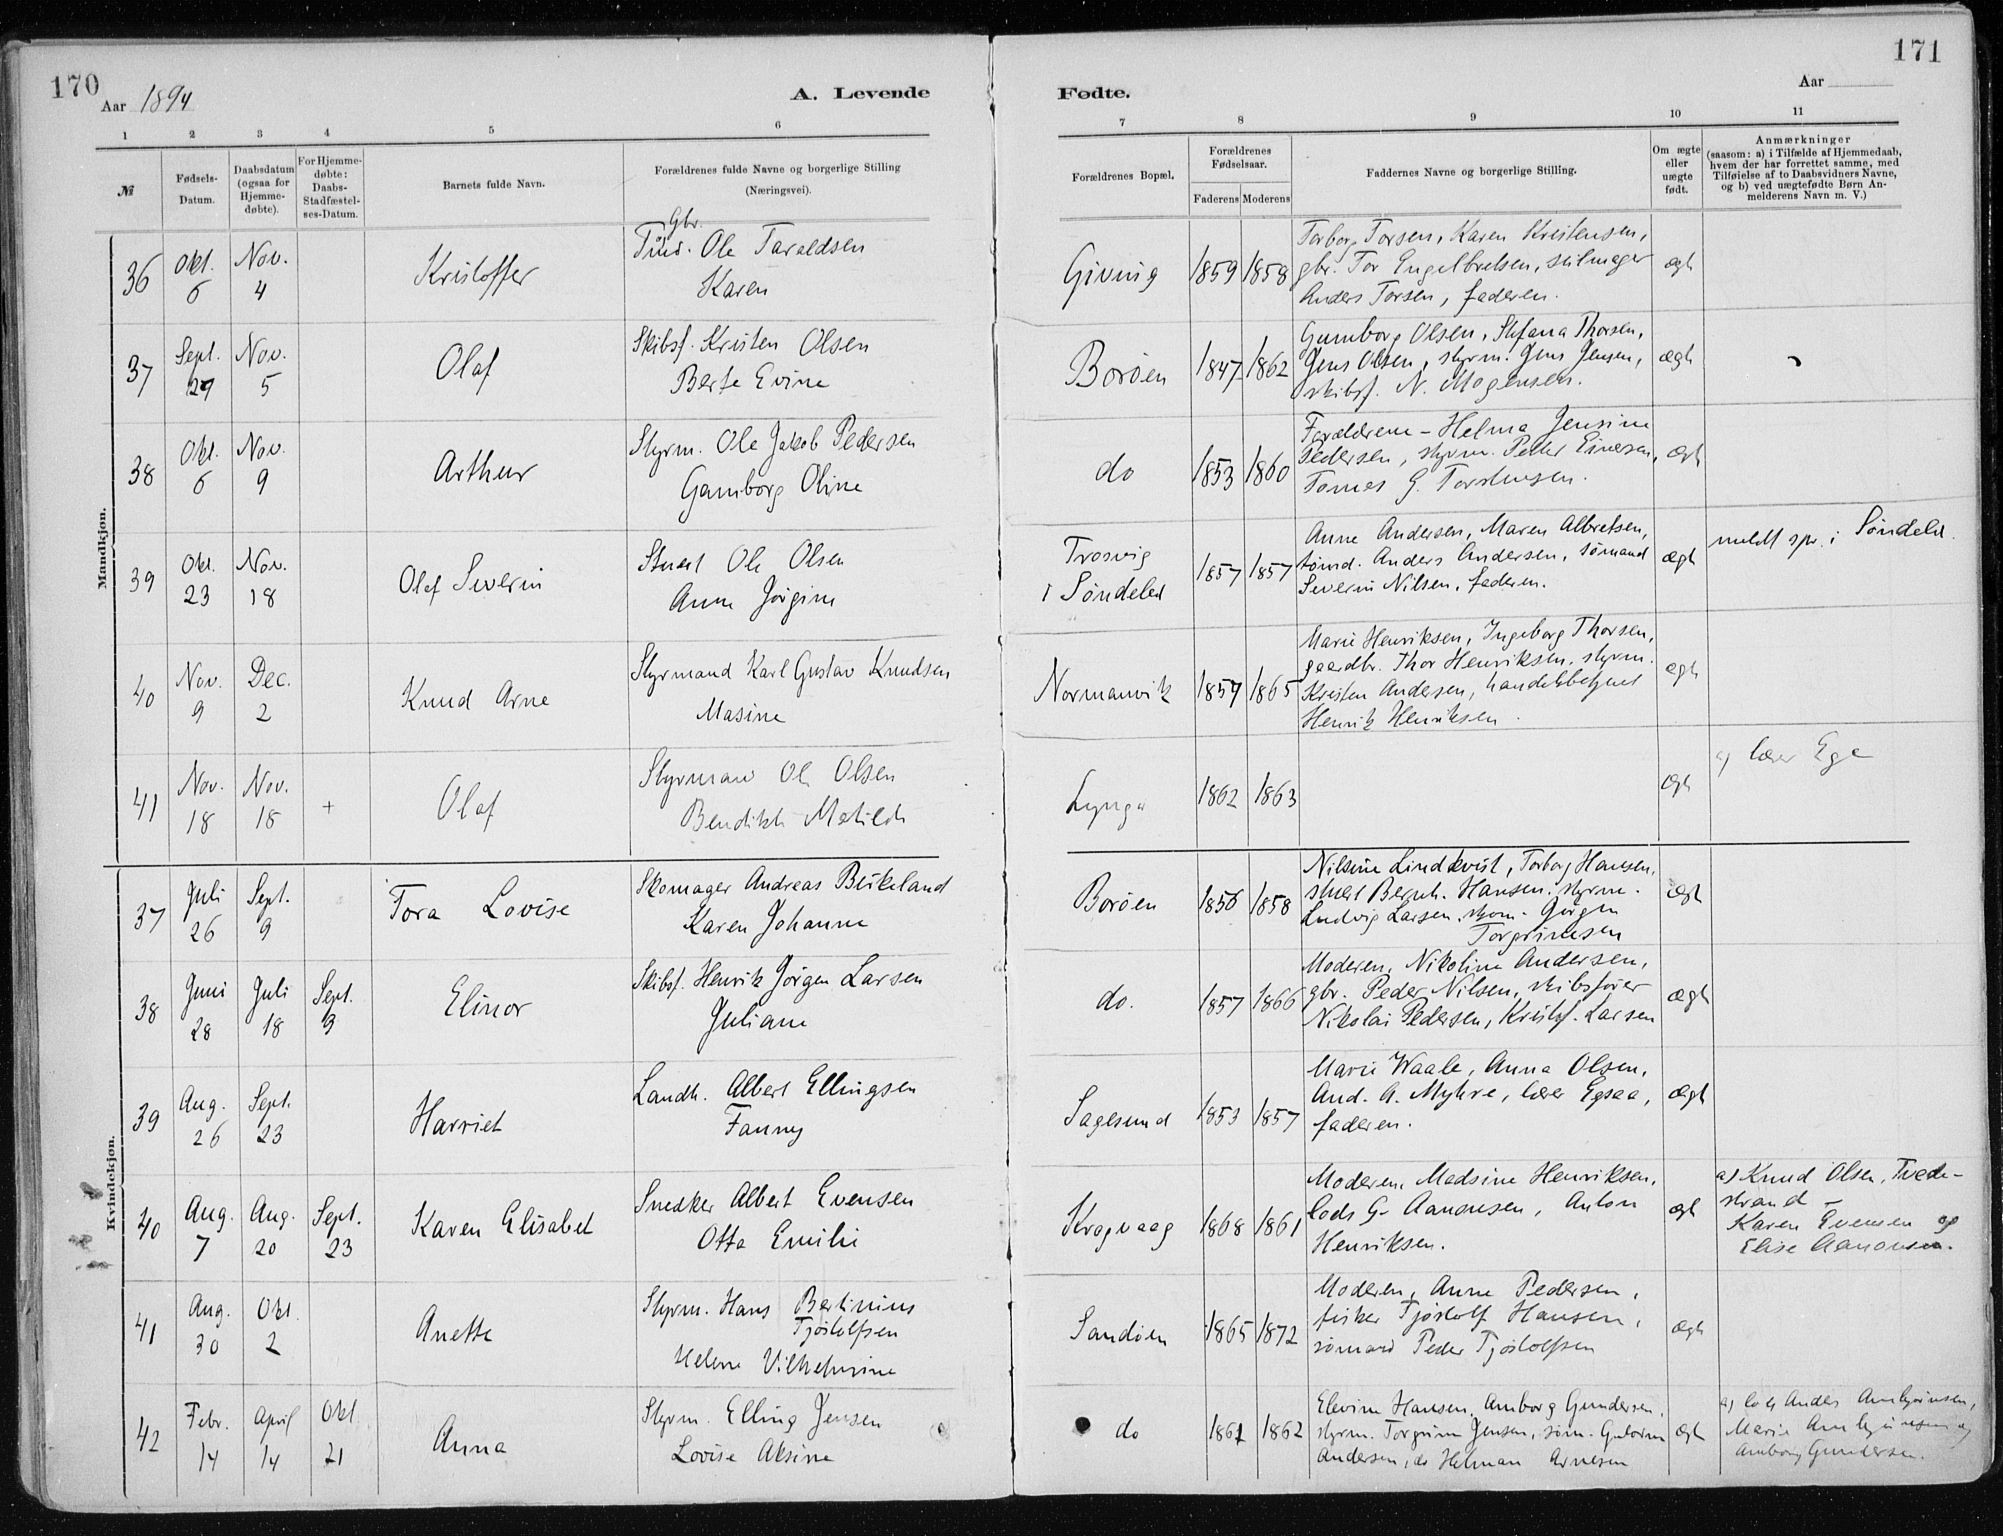 170
Aar 1894
A. Levende
Fødte.
171
Aar
1 2 3 4 5 6
7 8 9 10 11
№
Fødsels-
Datum.
Daabsdatum
(ogsaa for
Hjemme-
døbte).
For Hjemme-
døbte:
Daabs-
Stadfæstel-
ses-Datum.
Barnets fulde Navn.
Forældrenes fulde Navne og borgerlige Stilling
(Næringsvei).
Forældrenes Bopæl.
Forældrenes
Fødselsaar.
Faderens Moderens
Faddernes Navne og borgerlige Stilling.
Om ægte
eller
uægte
født.
Anmærkninger
(saasom: a) i Tilfælde af Hjemmedaab,
hvem der har forrettet samme, med
Tilføielse af to Daabsvidners Navne,
og b) ved uægtefødte Børn An-
melderens Navn m. V.)
Mandkjøn.
36
Okt.
6
Nov.
4
Kristoffer
Gbr.
Tømd. Ole Taraldsen
Karen
Giving
1859 1858
Torborg Torsen, Karen Kristensen,
gbr. Tor Engelbretsen, seilmager
Anders Torsen, faderen.
ægt
37
Sept.
29
Nov.
5
Olaf
Skibsf. Kristen Olsen
Berte Evine
Borøen
1847 1862
Gunborg Olsen, Stefana Thorsen,
Jens Olsen, styrm. Jens Jensen,
skibsf. N. Mogensen.
ægt
38
Okt.
6
Nov.
9
Arthur
Styrm. Ole Jakob Pedersen
Gamborg Oline
do
1853 1860
Forældrene - Helma Jensine
Pedersen, styrm. Peder Einersen,
Tomas G. Torstensen.
ægt
39
Okt.
23
Nov.
18
Olaf Severin
Stuert Ole Olsen
Anne Jørgine
Trosvig
i Søndeled
1857 1857
Anne Andersen, Maren Albretsen,
tømd. Anders Andersen, sømand
Severin Nilsen, faderen.
ægt
meldt spr. i Søndeled.
40
Nov.
9
Dec.
2
Knud Arne
Styrmand Karl Gustav Knudsen
Masine
Normanvik
1859 1865
Marie Henriksen, Ingeborg Thorsen,
gaardbr. Thor Henriksen, styrm.
Kristen Andersen, handelsbetjent
Henrik Henriksen.
ægt
41
Nov.
18
Nov.
18
+
Olaf
Styrmand Ole Olsen
Bendikte Matilde
Lyngø
1862 1863
ægt
a) lærer Ege
Kvindekjøn.
37
Juli
26
Sept.
9
Tora Lovise
Skomager Andreas Birkeland
Karen Johanne
Borøen
1856 1858
Nilsine Lindkvist, Torborg Hansen,
stuert Bernh. Hansen, styrm.
Ludvig Larsen, skom. Jørgen
Torgrimsen
ægt
38
Juni
28
Juli
18
Sept.
9
Elinor
Skibsf. Henrik Jørgen Larsen
Juliane
do.
1857 1866
Moderen, Nikoline Andersen,
gbr. Peder Nilsen, skibsfører
Nikolai Pedersen, Kristof. Larsen
ægt
39
Aug.
26
Sept.
23
Harriet
Landh. Albert Ellingsen
Fanny
Sagesund
1853 1857
Marie Waale, Anna Olsen,
And. A. Myhre, lærer Egsaa,
faderen.
ægt
40
Aug.
7
Aug.
20
Sept.
23
Karen Elisabet
Snedker Albert Evensen
Otta Emilie
Krogvaag
1868 1861
Moderen, Madsine Henriksen,
lods G. Aanonsen, Anton
Henriksen.
ægt
a) Knud Olsen, Tvede-
strand -
Karen Evensen og
Elise Aanonsen.
41
Aug.
30
Okt.
2
Anette
Styrm. Hans Bertinius
Tjøstolfsen
Helene Vilhelmine
Sandøen
1865 1872
Moderen, Anne Pedersen,
fisker Tjøstolf Hansen,
sømand Peder Tjøstolfsen
ægt
42
Febr.
14
April
14
Okt.
21
Anna
Styrm. Elling Jensen
Lovise Aksine
do
1861 1862
Elevine Hansen, Amborg Gundersen,
styrm. Torgrim Jensen, søm. Gutorm
Andersen, do Helman Arnesen
ægt
a) lods Anders Arnbjørnsen,
Marie Arnbjørnsen og
Amborg Gundersen.